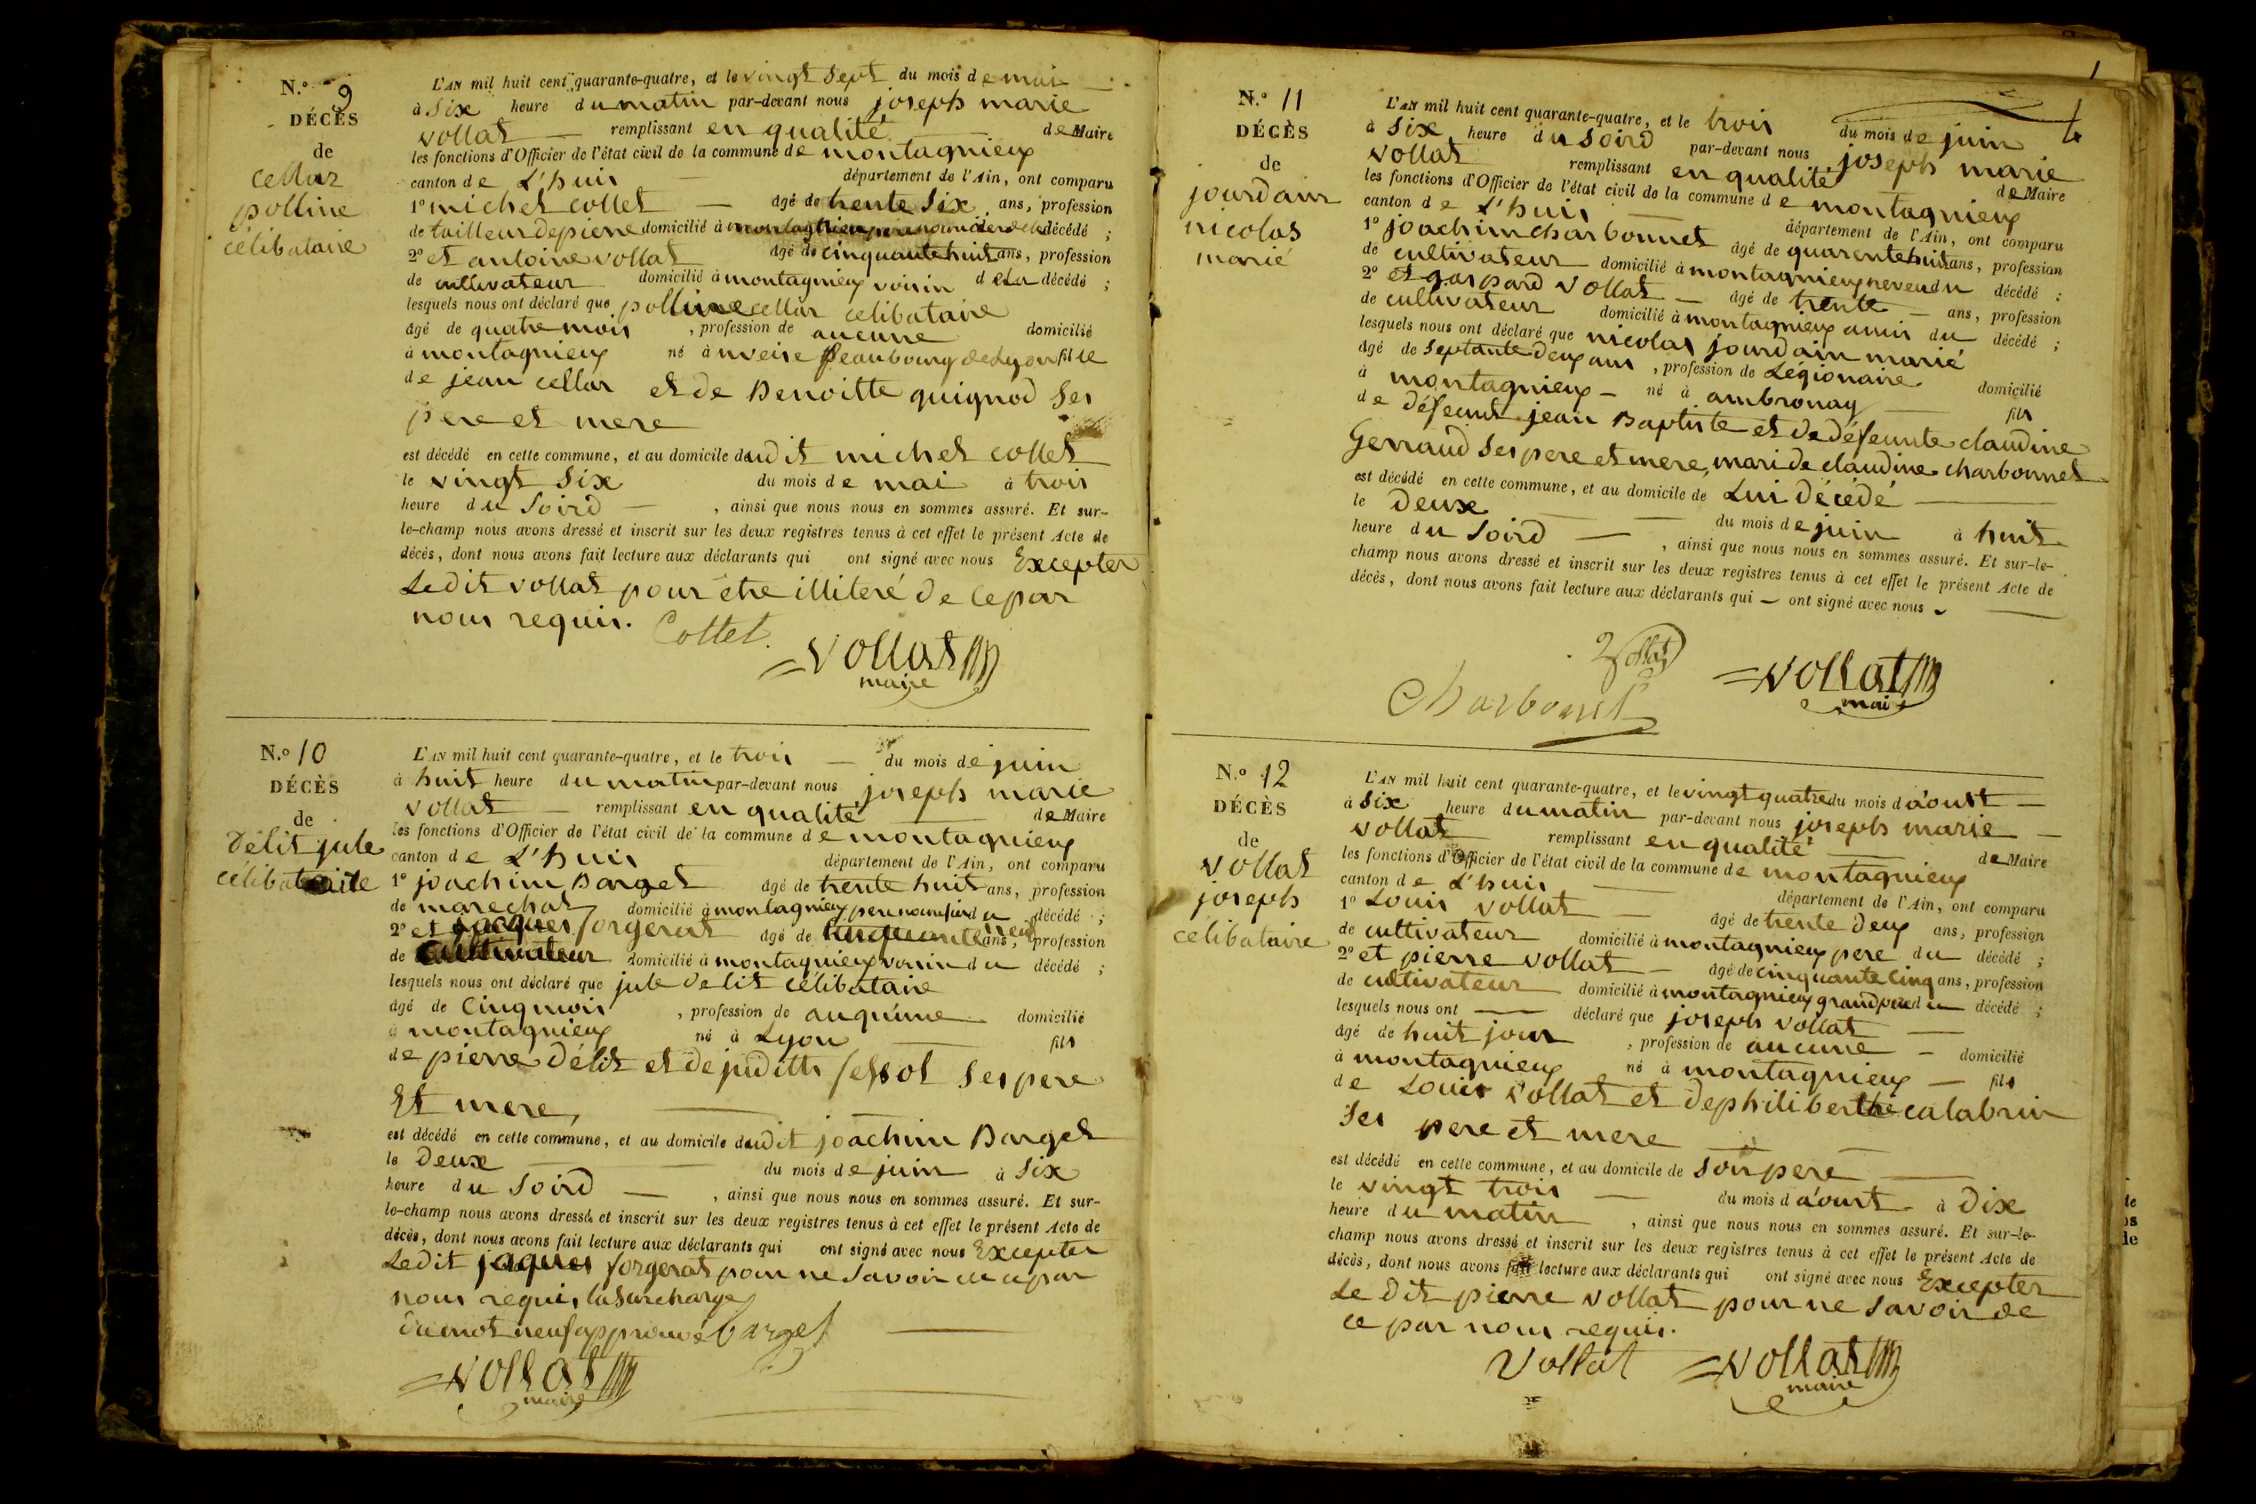 N.º 9
DÉCÈS
de
Cellar
polline
célibataire
L'AN mil huit cent quarante-quatre, et le vingt sept du mois de mai
à Six heure du matin par-devant nous joseph marie
vollat remplissant en qualité de Maire
les fonctions d'Officier de l'état civil de la commune de montagnieux
canton de L'huis département de l'Ain, ont comparu
1º michel collet âgé de trente Six ans, profession
de tailleur de pierre domicilié à montagnieux pere nourricier de la décédé ;
2º et antoine vollat âgé de cinquante huit ans, profession
de cultivateur domicilié à montagnieux voisin de la décédé ;
lesquels nous ont déclaré que polline cellar celibataire
âgé de quatre mois , profession de aucune domicilié
à montagnieux né à veise feaubourg de Lyon fille
de jean cellar et de Benoitte quignod Ses
pere et mere
est décédé en cette commune, et au domicile dudit michel collet
le vingt Six du mois de mai à trois
heure du Soird , ainsi que nous nous en sommes assuré. Et sur-
le-champ nous avons dressé et inscrit sur les deux registres tenus à cet effet le présent Acte de
décès, dont nous avons fait lecture aux déclarants qui ont signé avec nous Excepter
Ledit vollat pour être illiteré de ce par
nous requis. Collet
vollat
maire
N.º 10
DÉCÈS
de
Délit jule
célibataire
L'AN mil huit cent quarante-quatre, et le trois du mois de juin
à huit heure du matin par-devant nous joseph marie
vollat remplissant en qualité de Maire
les fonctions d'Officier de l'état civil de la commune de montagnieux
canton de L'huis département de l'Ain, ont comparu
1º joachim Barget âgé de trente huit ans, profession
de marechal domicilié à montagnieux pere nourricier du décédé ;
2º et jacques forgerat âgé de cinquante neuf ans, profession
de cultivateur domicilié à montagnieux voisin du décédé ;
lesquels nous ont déclaré que jule delit célibataire
âgé de Cinq mois , profession de auqune domicilié
à montagnieux né à Lyon fils
de pierre Délit et de judith fessot Ses pere
Et mere,
est décédé en cette commune, et au domicile dudit joachim Barget
le Deux du mois de juin à Six
heure du Soird , ainsi que nous nous en sommes assuré. Et sur-
le-champ nous avons dressé et inscrit sur les deux registres tenus à cet effet le présent Acte de
décès, dont nous avons fait lecture aux déclarants qui ont signé avec nous Excepter
Ledit jaques forgerat pour ne Savoir de ce par
nous requis la Surcharge
du mot neuf approuvé barget
vollat
maire
N.º 11
DÉCÈS
de
jourdain
nicolas
marié
L'AN mil huit cent quarante-quatre, et le trois du mois de juin
à Six heure du Soird par-devant nous joseph marie
vollat remplissant en qualité de Maire
les fonctions d'Officier de l'état civil de la commune de montagnieux
canton de L'huis département de l'Ain, ont comparu
1º joachim charbonnet âgé de quarente huit ans, profession
de cultivateur domicilié à montagnieux neveu du décédé ;
2º et gaspard vollat âgé de trente ans, profession
de cultivateur domicilié à montagnieux amis du décédé ;
lesquels nous ont déclaré que nicolas jourdain marié
âgé de Septante deux ans , profession de Légionaire domicilié
à montagnieux né à ambronay fils
de défeunt jean Baptiste et de défeunte claudine
Gerraud Ses pere et mere, mari de claudine charbonnet
est décédé en cette commune, et au domicile de Lui décédé
le Deux du mois de juin à huit
heure du Soird , ainsi que nous nous en sommes assuré. Et sur-le-
champ nous avons dressé et inscrit sur les deux registres tenus à cet effet le présent Acte de
décès, dont nous avons fait lecture aux déclarants qui ont signé avec nous
Vollat
Charbonet
vollat
maire
N.º 12
DÉCÈS
de
vollat
joseph
célibataire
L'AN mil huit cent quarante-quatre, et le vingt quatre du mois d'aoust
à Six heure du matin par-devant nous joseph marie
vollat remplissant en qualité de Maire
les fonctions d'Officier de l'état civil de la commune de montagnieux
canton de L'huis département de l'Ain, ont comparu
1º Louis vollat âgé de trente deux ans, profession
de cultivateur domicilié à montagnieux pere du décédé ;
2º et pierre vollat âgé de cinquante cinq ans, profession
de cultivateur domicilié à montagnieux grand pere du décédé ;
lesquels nous ont déclaré que joseph vollat
âgé de huit jour , profession de aucune domicilié
à montagnieux né à montagnieux fils
de Louis vollat et de philiberthe calabrin
Ses pere et mere
est décédé en cette commune, et au domicile de Son pere
le vingt trois du mois d'aoust à Dix
heure du matin , ainsi que nous nous en sommes assuré. Et sur-le-
champ nous avons dressé et inscrit sur les deux registres tenus à cet effet le présent Acte de
décès, dont nous avons fait lecture aux déclarants qui ont signé avec nous Excepter
Le dit pierre vollat pour ne Savoir de
ce par nous requis.
Vollat vollat
maire